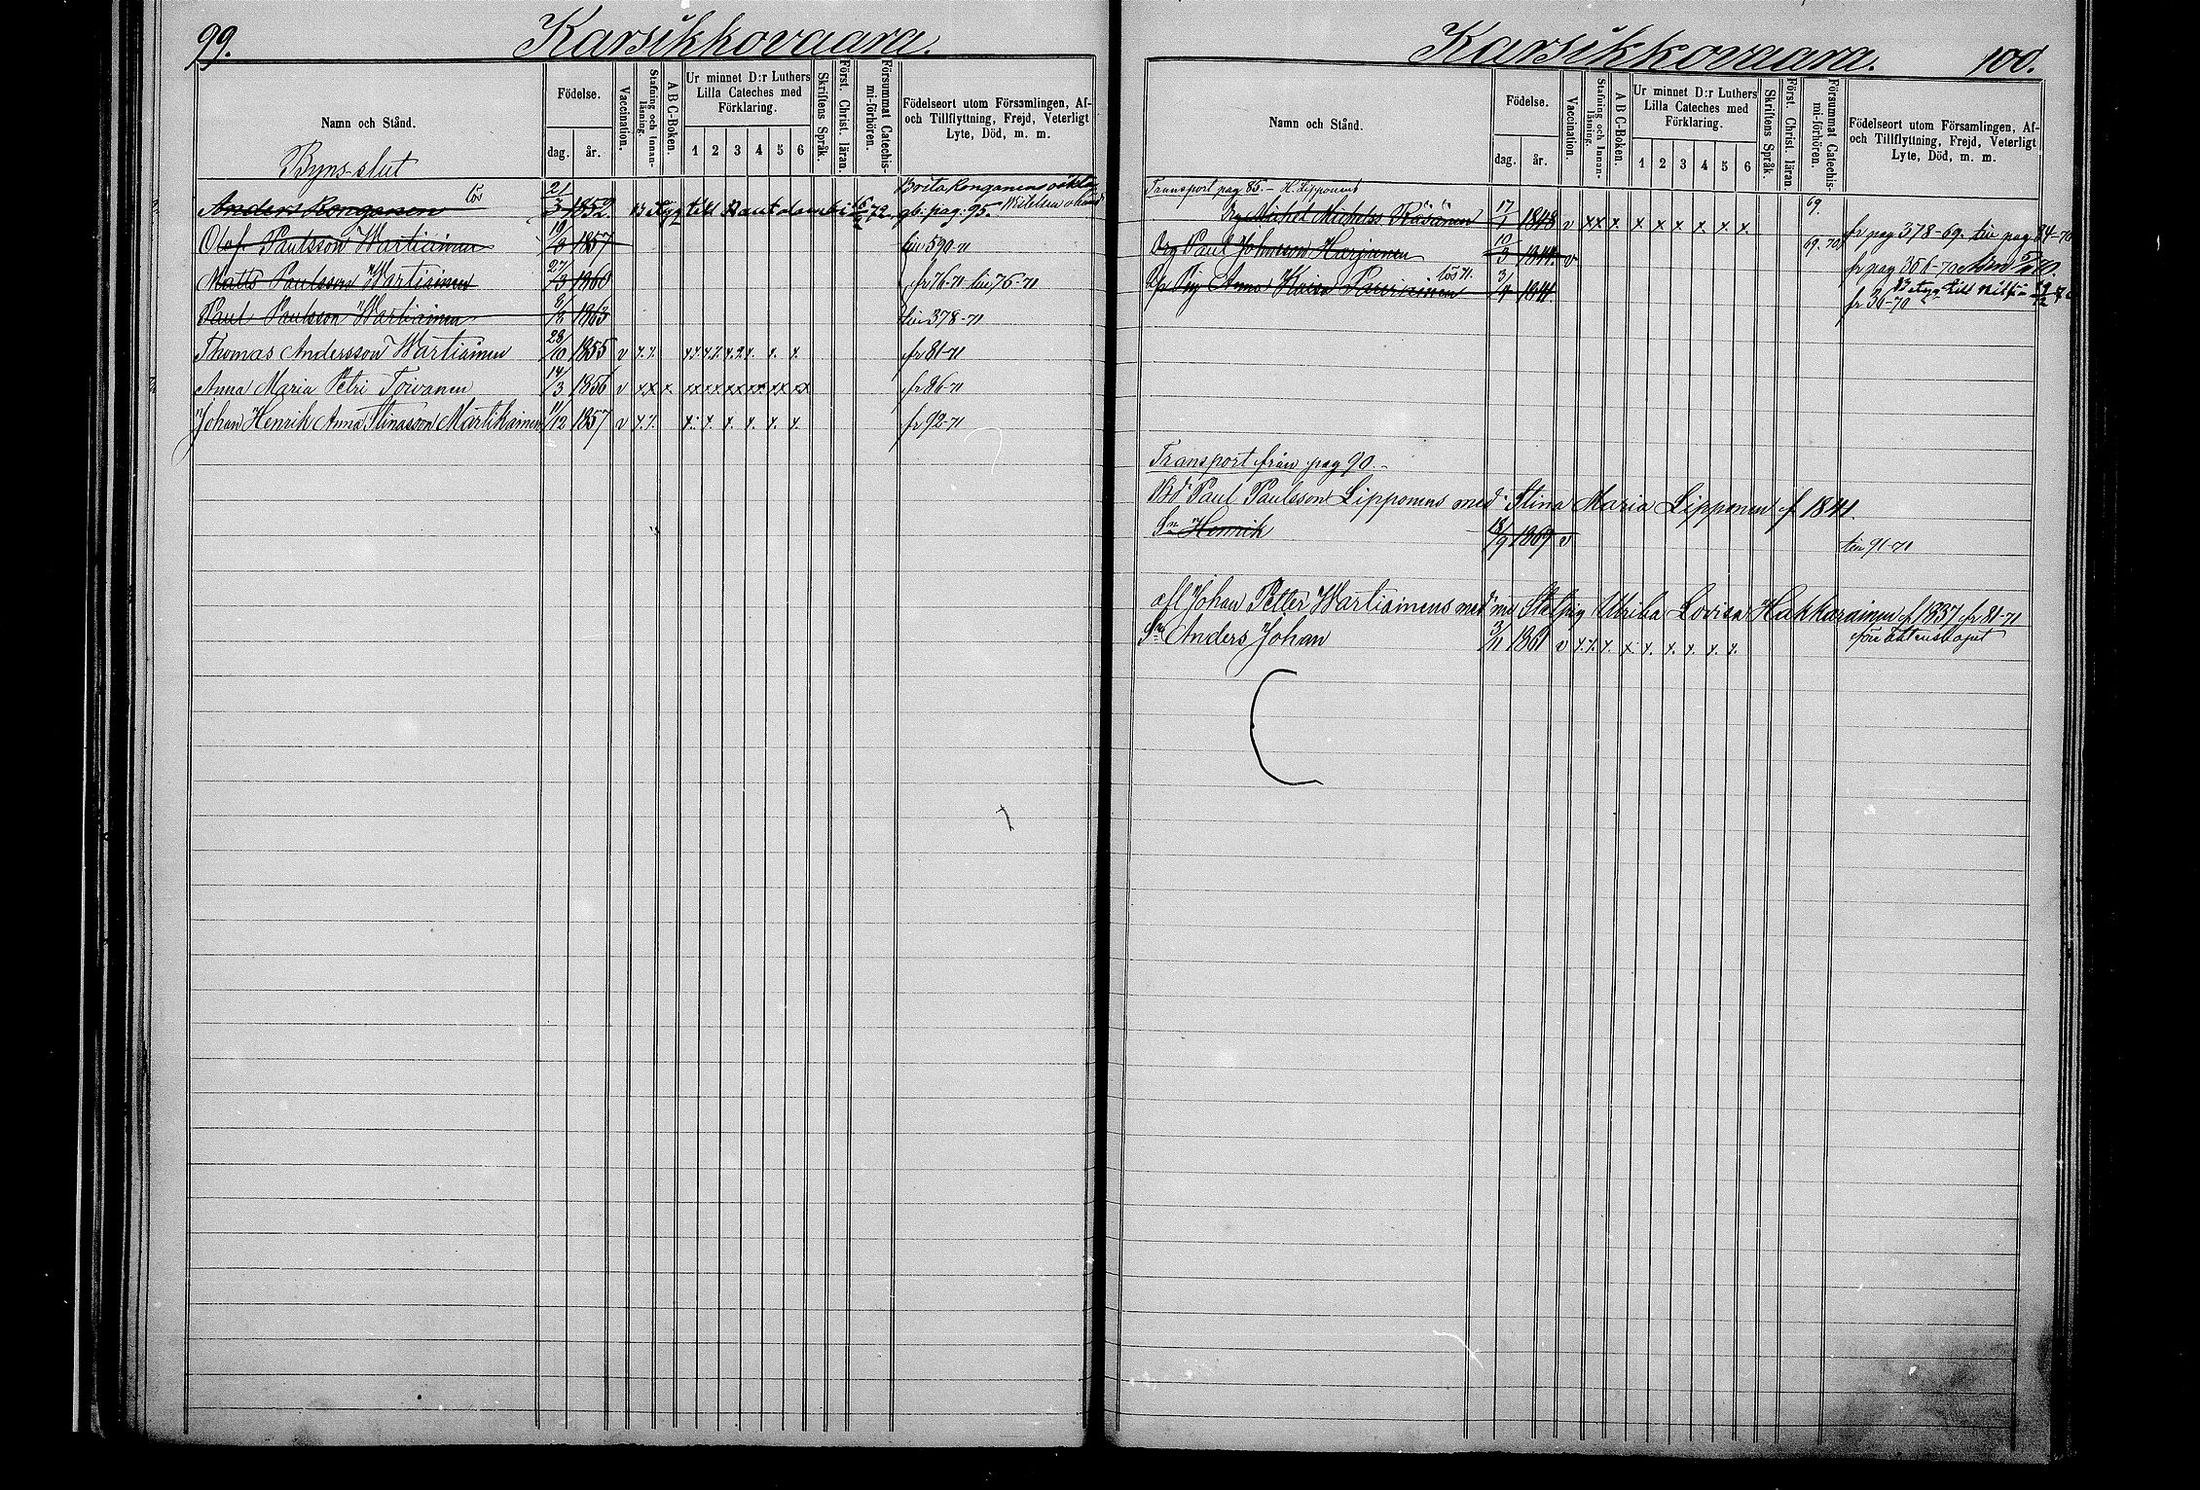 99.
Karsikkovaara.
Namn och Stånd.
Födelse.
dag.
år.
Vaccination.
Stafning och Innanläsning.
A B C-Boken.
Ur minnet D:r Luthers Lilla Cateches med Förklaring.
1 2 3 4 5 6
Skriftens Språk.
Först. Christ. läran.
Försummat Catechismi-förhören.
Födelseort utom Församlingen, Af- och Tillflyttning, Frejd, Veterligt Lyte, Död, m. m.
Byns-slut
Anders Ronganen 21/3 1852 gb. pag. 95.
Olof Paulsson Wartiainen 1857 tin 590-71
Matts Paulsson Wartiainen 1860 fr 76-71 tin 76-71
Paul Paulsson Wartiainen 1863 tin 378-71
Thomas Andersson Wartiainen 28/10 1855 v x x fr 81-71
Anna Maria Petri Toivanen 14/3 1856 v xx x xx xx xx xx xx xx fr 86-71
Johan Henrik Anna Stinasson Martikainen 11/12 1857 v x x x x x x x x fr 92-71
Karsikkovaara.
100.
Namn och Stånd.
Födelse.
dag.
år.
Vaccination.
Stafning och Innanläsning.
A B C-Boken.
Ur minnet D:r Luthers Lilla Cateches med Förklaring.
1 2 3 4 5 6
Skriftens Språk.
Först. Christ. läran
Försummat Catechismi-förhören.
Födelseort utom Församlingen, Af- och Tillflyttning, Frejd, Veterligt Lyte, Död, m. m.
Transport pag 85. - H. Lipponens
Drg Michel Michelss Räsänen 17/1 1848 v xx x x x x x x x 69. fr pag 378-69. tin pag 84-70
Drg Paul Johansson 10/3 1844 v 69. 70 fr pag 351-70
Pig Anna Kaisa 3/4 1841 fr 36-70
Transport från pag 90.-
Paul Paulsson Lipponens med Stina Maria Lipponen f 1841.
Sn Henrik 18/9 1869 v tin 91-71
afl Johan Petter Wartiainens med Ulrika Lovisa Hakkarainen f 1837 fr 81-71
Sn Anders Johan 3/11 1861 v x x x x x x x x x före äktenskapet